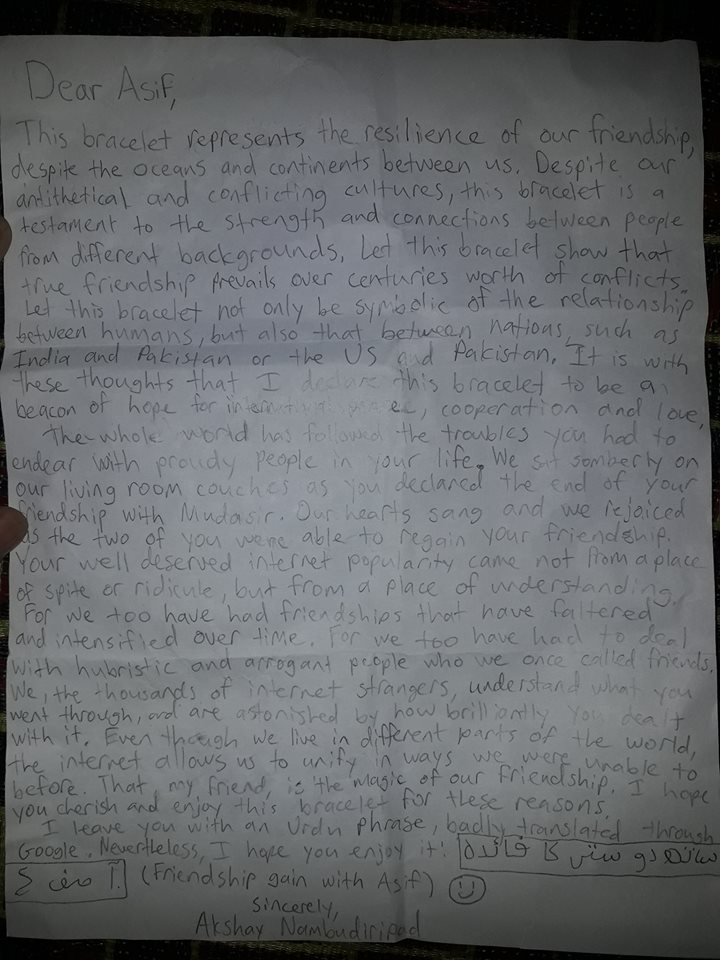 Dear Asif,
This bracelet represents the resilience of our friendship,
despite the oceans and continents between us. Despite our
antithetical and conflicting cultures, this bracelet is a
testament to the strength and connections between people
from different backgrounds. Let this bracelet show that
true friendship prevails over centuries worth of conflicts.
Let this bracelet not only be symbolic of the relationship
between humans, but also that between nations, such as
India and Pakistan or the US and Pakistan. It is with
these thoughts that I declare this bracelet to be a
beacon of hope for cooperation and love.
The whole world has followed the troubles you had to
endear with proudy people in your life. We sit somberly on
our living room couches as you declared the end of your
friendship with Mudasir. Our hearts sang and we rejoiced
as the two of you were able to regain your friendship.
Your well deserved internet popularity came not from a place
of spite or ridicule, but from a place of understanding.
For we too have had friendships that have faltered
and intensified over time. For we too have had to deal
with hubristic and arrogant people who we once called friends.
We, the thousands of internet strangers, understand what you
went through, and are astonished by how brilliantly you dealt
with it. Even though we live in different parts of the world,
the internet allows us to unify in ways we were unable to
before. That, my friend, is the magic of our friendship. I hope
you cherish and enjoy this bracelet for these reasons.
I leave you with an Urdu phrase, badly translated through
Google. Nevertheless, I hope you enjoy it! ساتھ دوستی کا فائدہ
(Friendship gain with Asif)
Sincerely,
Akshay Nambudiripad